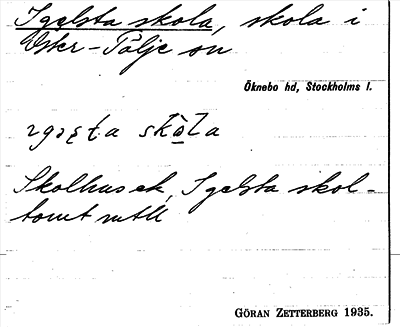 Igelsta skola, skola i
Öster-Tälje sn
Öknebo hd, Stockholms l.
skola
Skolhus ek, Igelsta skol-
tomt mtll
GÖRAN ZETTERBERG 1935.